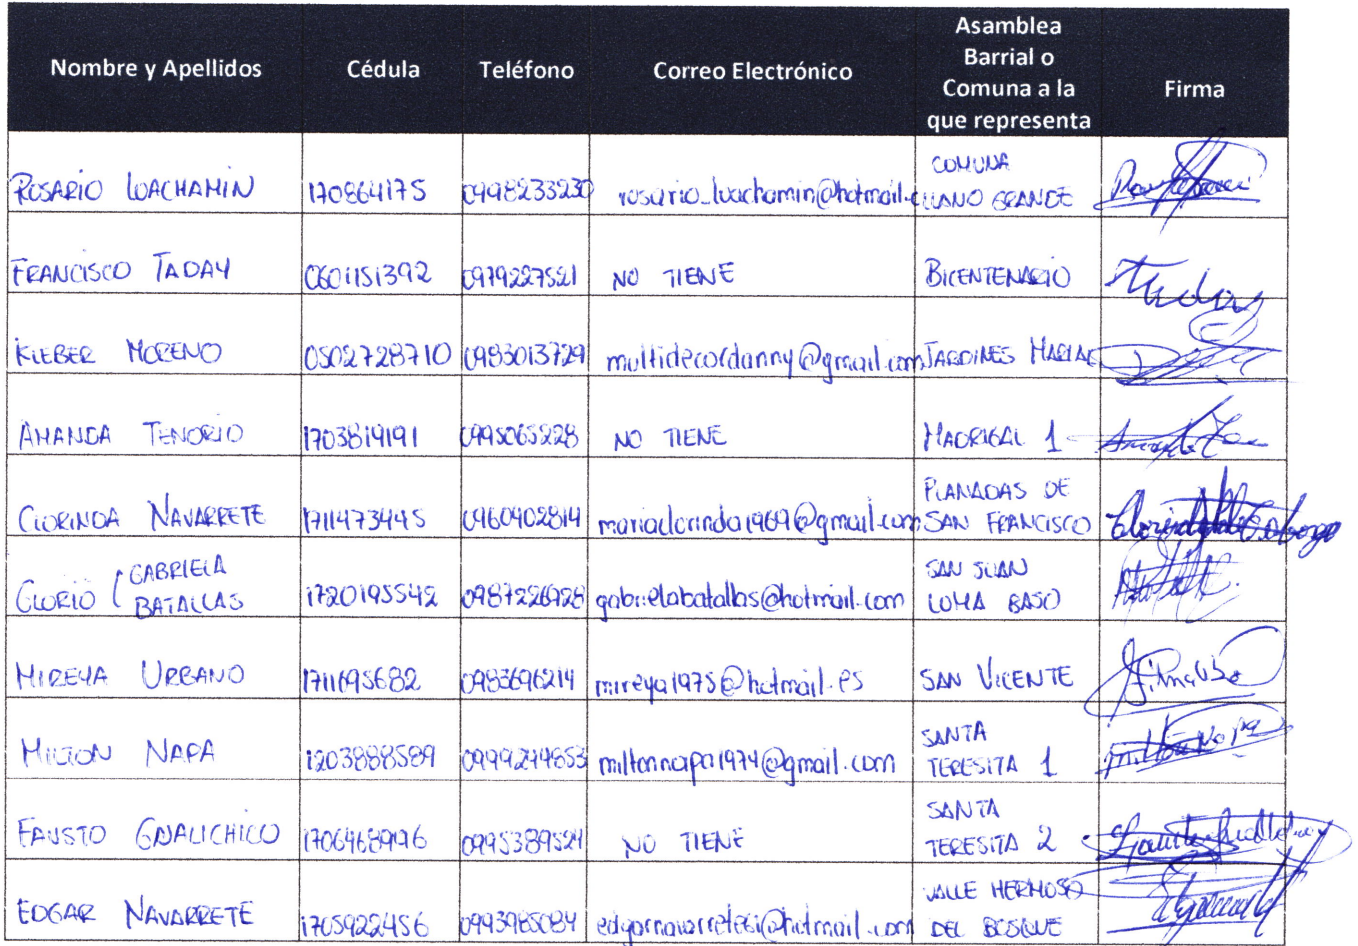 Nombre y Apellidos Cédula Teléfono Correo Electrónico Asamblea Barrial o Comuna a la que representa Firma
ROSARIO LOACHAMIN 170864175 0998233230 rosario_loachamin@hotmail.c COMUNA LLANO GRANDE
FRANCISCO TADAY 0601151392 0979227521 NO TIENE BICENTENARIO
KLEBER MORENO 0502728710 0983013729 multidecordanny@gmail.com JARDINES
AMANDA TENORIO 1703819191 0995065228 NO TIENE MADRIGAL 1
CLORINDA NAVARRETE 1711473445 0960402814 mariaclorinda1969@gmail.com PLANADAS DE SAN FRANCISCO
GABRIELA BATALLAS 1720195542 0987226928 gabrielabatallas@hotmail.com SAN JUAN LOMA BAJO
MIREYA URBANO 1711695682 0983696214 mireya1975@hotmail.es SAN VICENTE
MILTON NAPA 1203888589 miltonnapa1974@gmail.com SANTA TERESITA 1
FAUSTO GUALICHICO 0995389524 NO TIENE SANTA TERESITA 2
EDGAR NAVARRETE 1705922456 0993985084 VALLE HERMOSO DEL BOSQUE